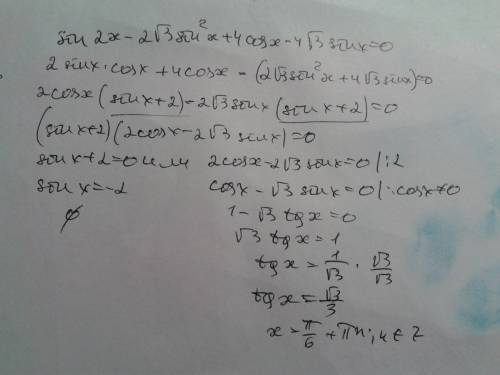 sin 2x - 2√3 sin²x + 4cosx - 4√3 sinx = 0
2 sinx · cosx + 4cosx - (2√3 sin²x + 4√3 sinx) = 0
2cosx (sinx+2) - 2√3 sinx (sinx+2) = 0
(sinx+2)(2cosx - 2√3 sinx) = 0
sinx+2=0 или 2cosx - 2√3 sinx = 0 |:2
sin x = -2 cosx - √3 sinx = 0 |: cosx ≠ 0
∅ 1 - √3 tgx = 0
√3 tgx = 1
tgx = 1/√3 · √3/√3
tgx = √3/3
x = π/6 + πn; n ∈ Z